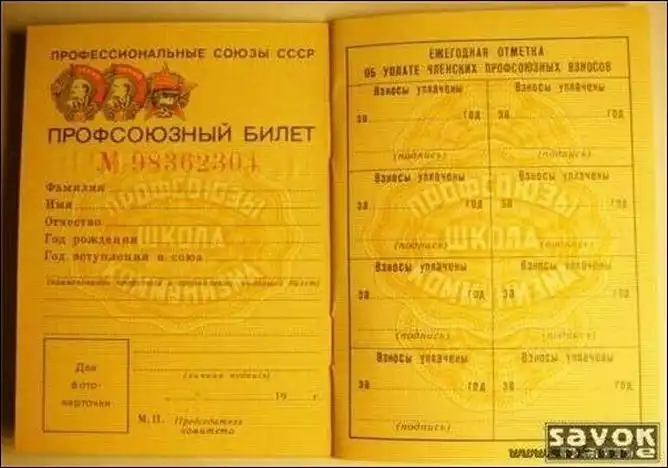 ПРОФЕССИОНАЛЬНЫЕ СОЮЗЫ СССР
ПРОФСОЮЗНЫЙ БИЛЕТ
№ 98362304
Фамилия
Имя
Отчество
Год рождения
Год вступления в союз
Для
фото-
карточки
(личная подпись)
19 г.
М.П. Председатель
комитета
ПРОФСОЮЗЫ
ШКОЛА
КОММУНИЗМА
ЕЖЕГОДНАЯ ОТМЕТКА
ОБ УПЛАТЕ ЧЛЕНСКИХ ПРОФСОЮЗНЫХ ВЗНОСОВ
Взносы уплачены Взносы уплачены
за год за год
(подпись) (подпись)
Взносы уплачены Взносы уплачены
за год за год
(подпись) (подпись)
Взносы уплачены Взносы уплачены
за год за год
(подпись) (подпись)
Взносы уплачены Взносы уплачены
за год за год
(подпись) (подпись)
ПРОФСОЮЗЫ
ШКОЛА
КОММУНИЗМА
savok
name